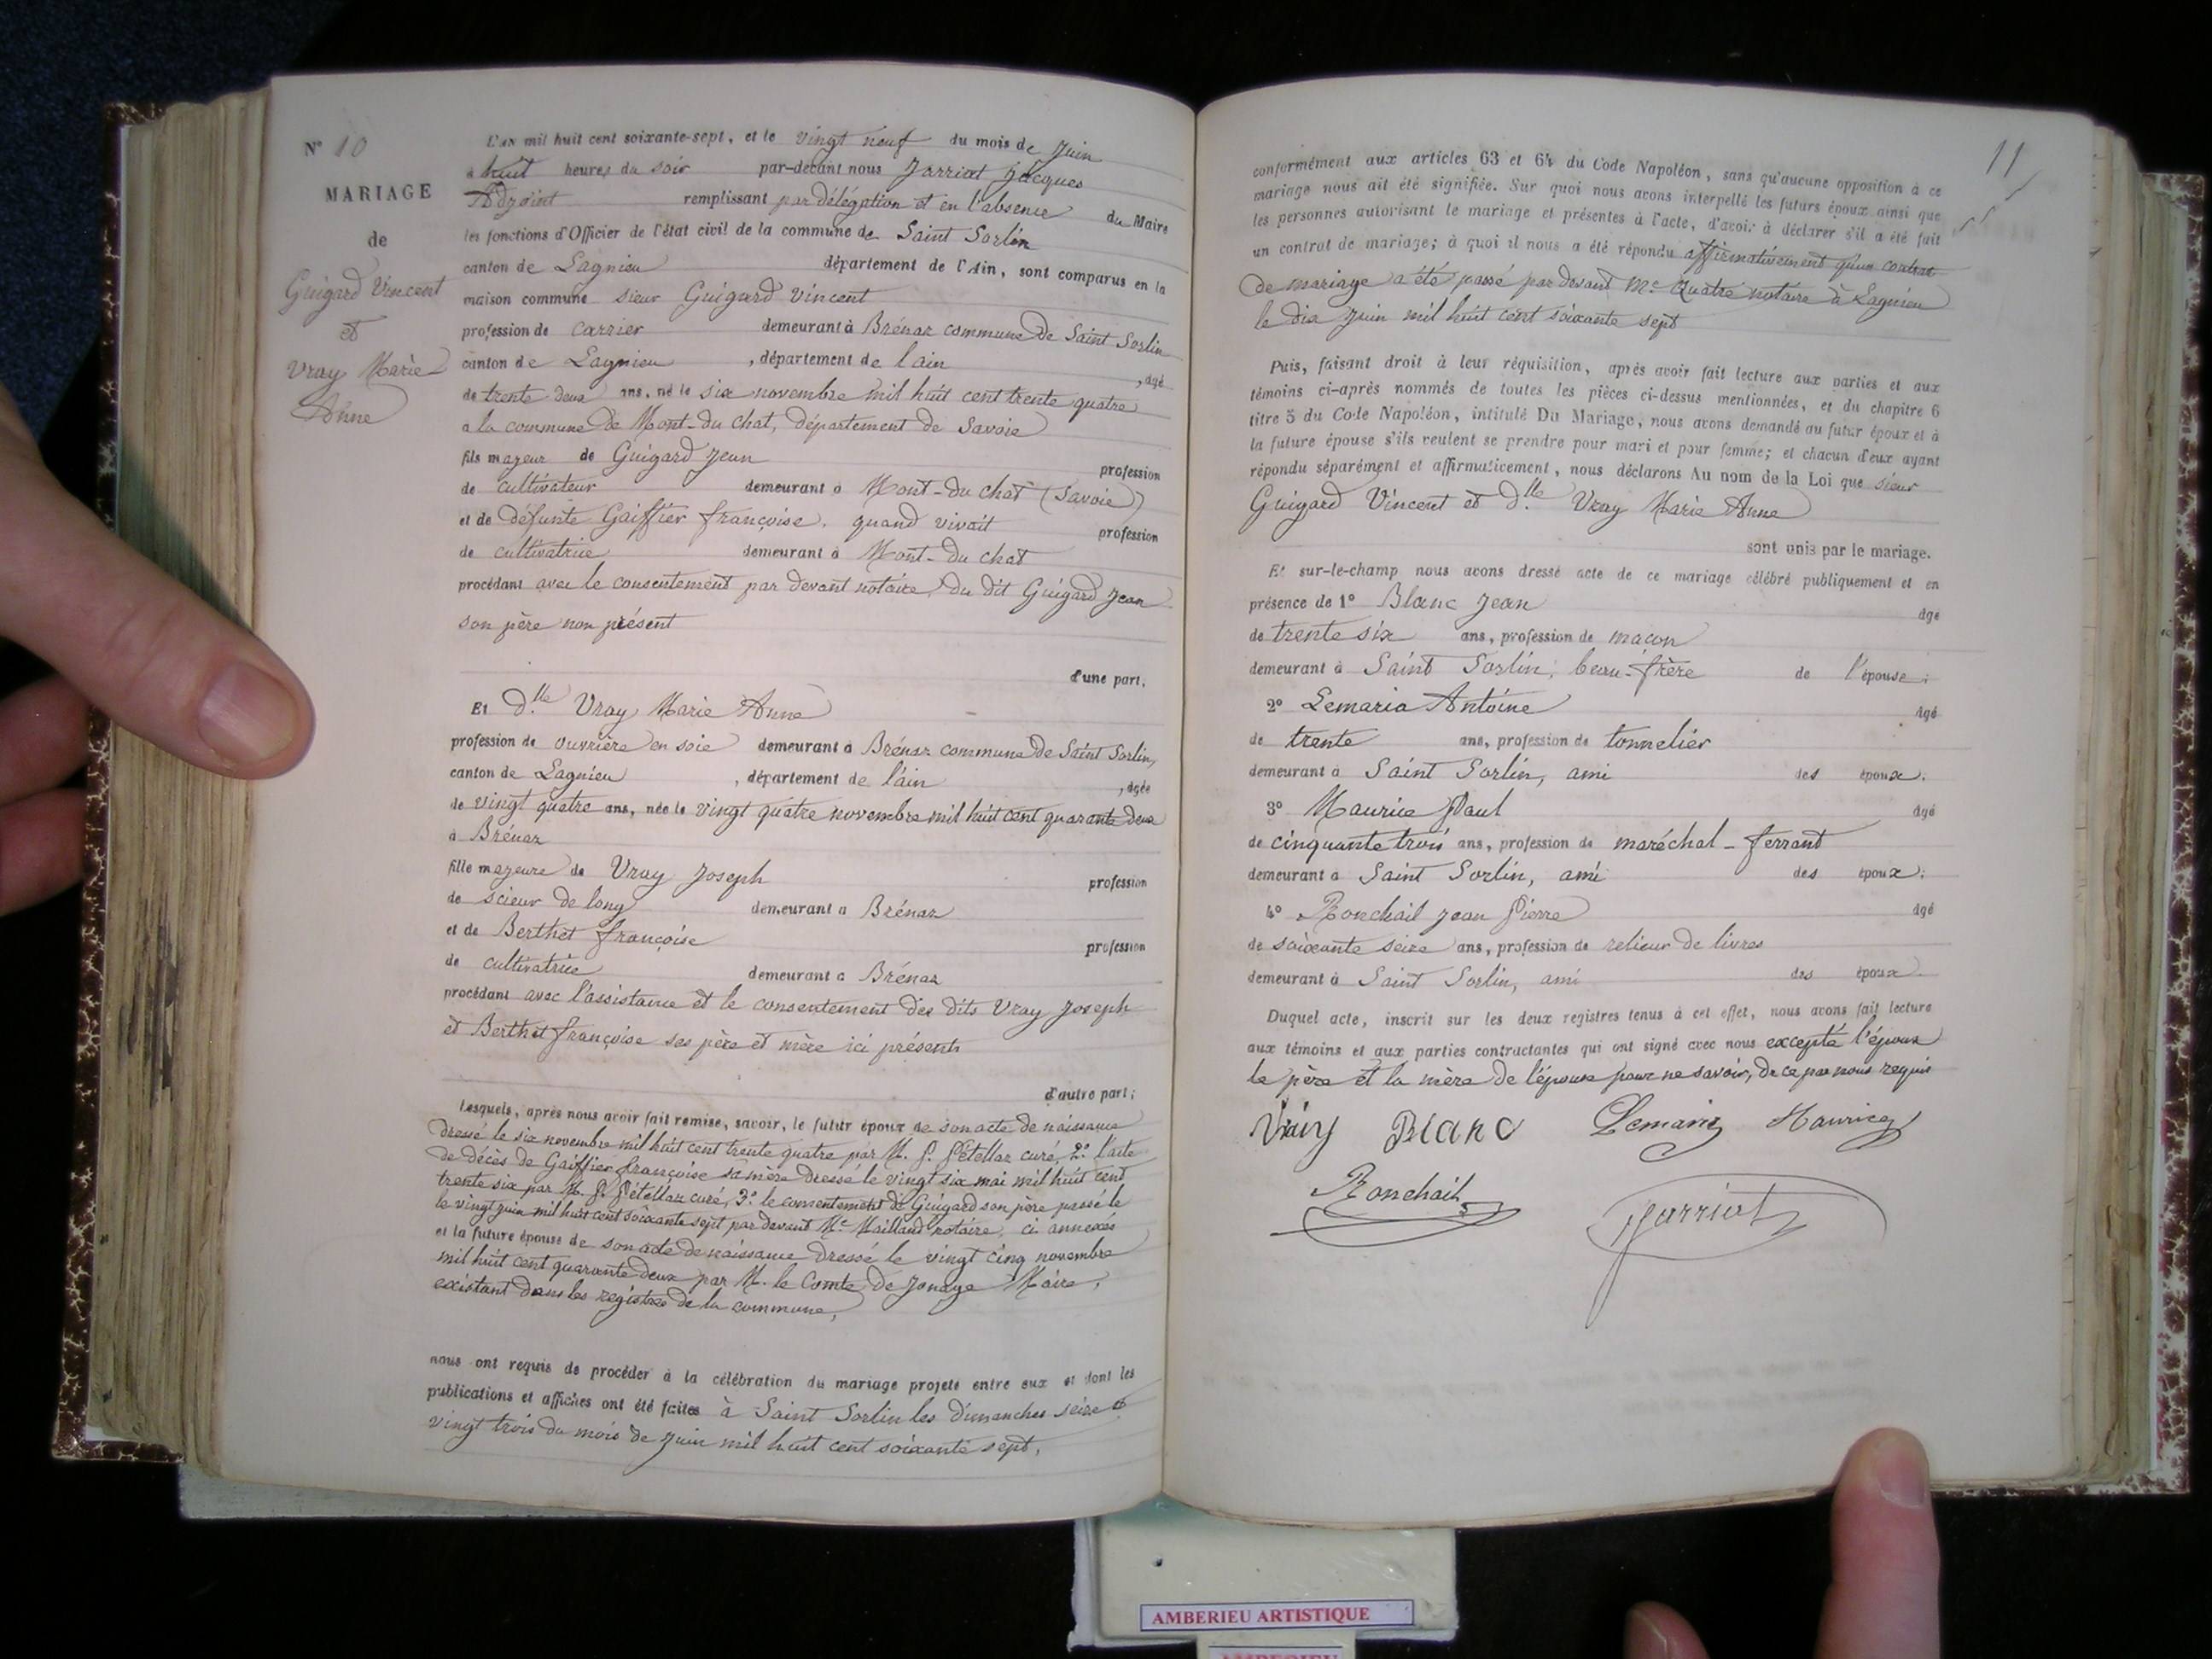 N° 10
MARIAGE
de
Guigard Vincent
et
Vray Marie
Anne
L'an mil huit cent soixante-sept, et le vingt neuf du mois de Juin
à huit heures du soir par-devant nous Jarriat Jacques
Adjoint remplissant par délégation et en l'absence du Maire
les fonctions d'Officier de l'état civil de la commune de Saint Sorlin
canton de Lagnieu département de l'Ain, sont comparus en la
maison commune sieur Guigard Vincent
profession de carrier demeurant à Brénaz commune de Saint Sorlin
canton de Lagnieu, département de l'ain, âgé
de trente deux ans, né le six novembre mil huit cent trente quatre
à la commune de Mont-du chat, département de Savoie
fils majeur de Guigard Jean profession
de cultivateur demeurant à Mont-du chat (Savoie)
et de défunte Gaiffier françoise, quand vivait profession
de cultivatrice demeurant à Mont-du chat
procédant avec le consentement par devant notaire, du dit Guigard Jean
son père non présent
d'une part.
Et d.lle Vray Marie Anne
profession de ouvrière en soie demeurant à Brénaz commune de Saint Sorlin,
canton de Lagnieu, département de l'ain, âgée
de vingt quatre ans, née le vingt quatre novembre mil huit cent quarante deux
à Brénaz
fille majeure de Vray Joseph profession
de scieur de long demeurant à Brénaz
et de Berthet françoise profession
de cultivatrice demeurant à Brénaz
procédant avec l'assistance et le consentement des dits Vray Joseph
et Berthet françoise ses père et mère ici présents
d'autre part;
Lesquels, après nous avoir fait remise, savoir, le futur époux de son acte de naissance
dressé le six novembre mil huit cent trente quatre par M. P. Pétellaz curé, 2° l'acte
de décès de Gaiffier françoise sa mère dressé le vingt six mai mil huit cent
trente six par M. P. Pétellaz curé, 3° le consentement de Guigard son père passé le
le vingt juin mil huit cent soixante sept par devant Me Mailland notaire, ci annexés
et la future épouse de son acte de naissance dressé le vingt cinq novembre
mil huit cent quarante deux par M. le Comte de Jonage Maire,
existant dans les registres de la commune,
nous ont requis de procéder à la célébration du mariage projeté entre eux et dont les
publications et affiches ont été faites à Saint Sorlin les dimanches seize et
vingt trois du mois de juin mil huit cent soixante sept,
11
conformément aux articles 63 et 64 du Code Napoléon, sans qu'aucune opposition à ce
mariage nous ait été signifiée. Sur quoi nous avons interpellé les futurs époux ainsi que
les personnes autorisant le mariage et présentes à l'acte, d'avoir à déclarer s'il a été fait
un contrat de mariage; à quoi il nous a été répondu affirmativement qu'un contrat
de mariage a été passé par devant Me Quatre notaire à Lagnieu
le dix juin mil huit cent soixante sept
Puis, faisant droit à leur réquisition, après avoir fait lecture aux parties et aux
témoins ci-après nommés de toutes les pièces ci-dessus mentionnées, et du chapitre 6
titre 5 du Code Napoléon, intitulé Du Mariage, nous avons demandé au futur époux et à
la future épouse s'ils veulent se prendre pour mari et pour femme; et chacun d'eux ayant
répondu séparément et affirmativement, nous déclarons Au nom de la Loi que sieur
Guigard Vincent et d.lle Vray Marie Anne
sont unis par le mariage.
Et sur-le-champ nous avons dressé acte de ce mariage célébré publiquement et en
présence de 1° Blanc Jean âgé
de trente six ans, profession de maçon
demeurant à Saint Sorlin, beau-frère de l'épouse;
2° Lemaria Antoine âgé
de trente ans, profession de tonnelier
demeurant à Saint Sorlin, ami des époux;
3° Maurice Paul âgé
de cinquante trois ans, profession de maréchal-ferrant
demeurant à Saint Sorlin, ami des époux;
4° Ronchail Jean Pierre âgé
de soixante seize ans, profession de relieur de livres
demeurant à Saint Sorlin, ami des époux.
Duquel acte, inscrit sur les deux registres tenus à cet effet, nous avons fait lecture
aux témoins et aux parties contractantes qui ont signé avec nous excepté l'époux
le père et la mère de l'épouse pour ne savoir, de ce par nous requis
Vray Blanc Lemaria Maurice
Ronchail Jarriat
AMBERIEU ARTISTIQUE
AMBERIEU